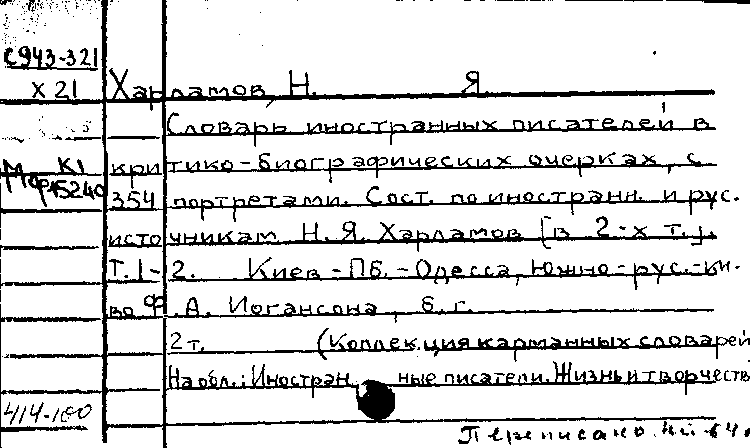 С943-321
Х 21 Харламов, Н. Я
Словарь иностранных писателей в
К1 критико-биографических очерках, с
354 портретами. Сост. по иностранн. и рус.
источникам Н. Я. Харламов [в 2-х т.].
Т. 1-2. Киев-Пб.-Одесса, Южно-рус.-кн-
во Ф. А. Иогансона, б. г.
2 т. (Коллекция карманных словарей
На обл.: Иностранные писатели. Жизнь и творчеств
414-100
Переписано